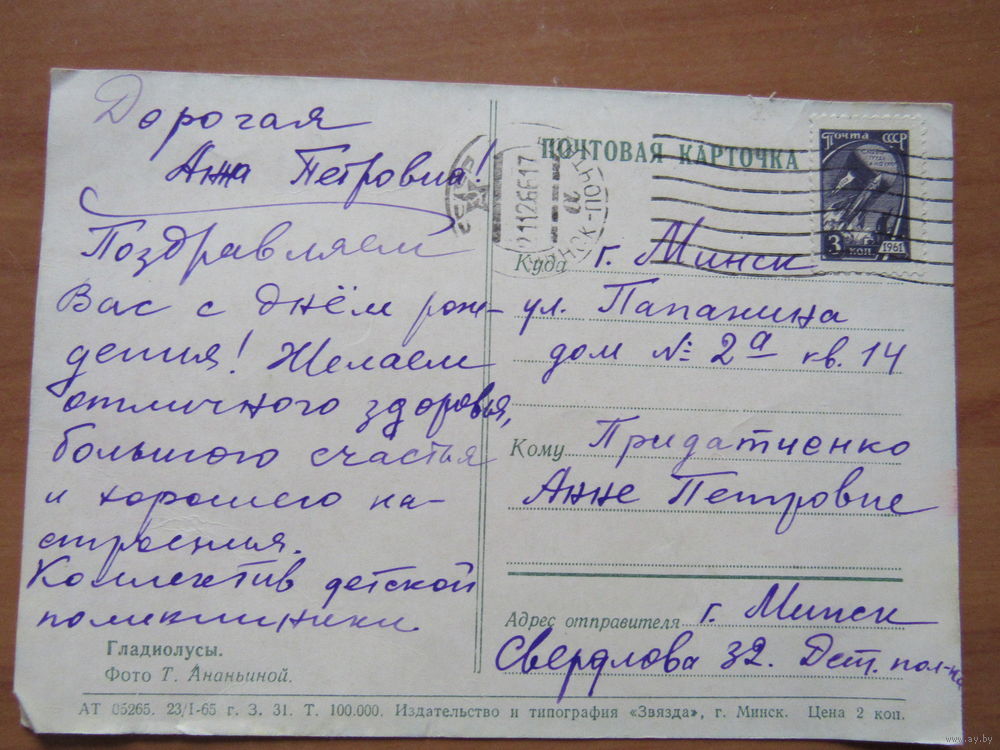 Дорогая
Анна Петровна!
Поздравляем
Вас с днём рож-
дения! Желаем
отличного здоровья,
большого счастья
и хорошего на-
строения.
Коллектив детской
поликлиники.
Гладиолусы.
Фото Т. Ананьиной.
ПОЧТОВАЯ КАРТОЧКА
СССР
21126617
Почта СССР
3 коп
1961
Куда г. Минск
ул. Папанина
дом № 2а кв. 14
Кому Придатченко
Анне Петровне
Адрес отправителя г. Минск
Свердлова 32. Дет. пол-ка
АТ 05265. 23/I-65 г. З. 31. Т. 100.000. Издательство и типография «Звязда», г. Минск. Цена 2 коп.
www.ay.by